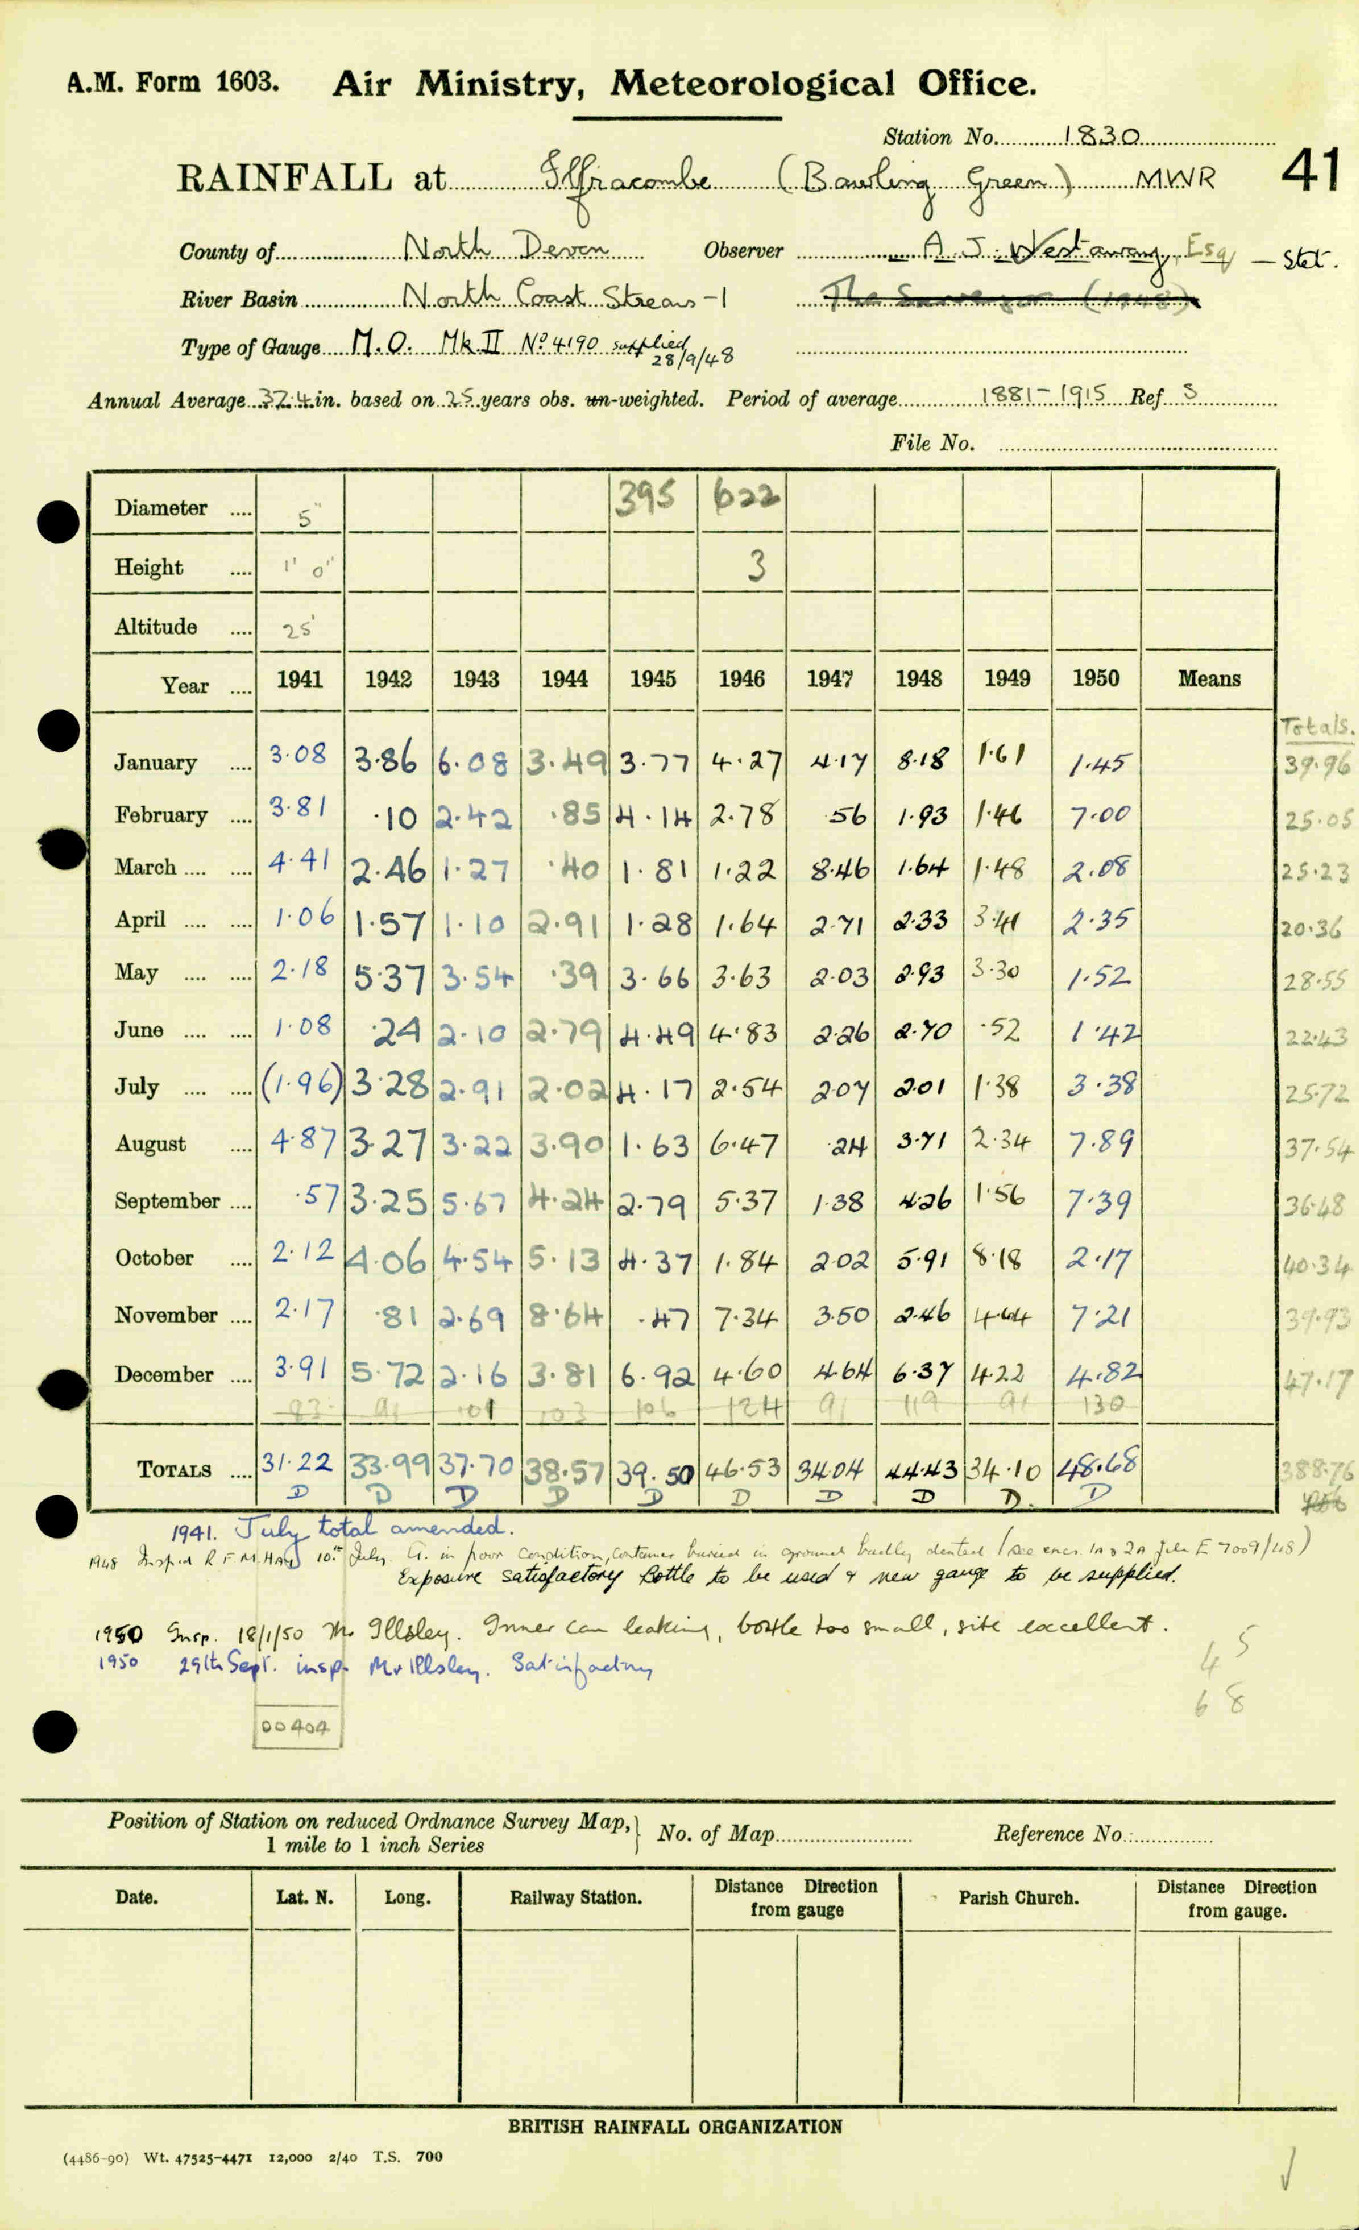 A.M. Form 1603. Air Ministry, Meteorological Office.
Station No. 1830
RAINFALL at Ilfracombe (Bowling Green) MWR 41
County of North Devon Observer A. J. Westaway, Esq — Stet.
River Basin North Coast Streams -1 The Surveyor (1948)
Type of Gauge M.O. Mk II Nº 4190 supplied 28/9/48
Annual Average 37.4 in. based on 25 years obs. un-weighted. Period of average 1881-1915 Ref S
File No.
Diameter .... 5" 395 622
Height .... 1' 0" 3
Altitude .... 25'
Year .... 1941 1942 1943 1944 1945 1946 1947 1948 1949 1950 Means
Totals.
January .... 3.08 3.86 6.08 3.49 3.77 4.27 4.17 8.18 1.61 1.45 39.96
February .... 3.81 .10 2.42 .85 4.14 2.78 .56 1.93 1.46 7.00 25.05
March .... .... 4.41 2.46 1.27 .40 1.81 1.22 8.46 1.64 1.48 2.08 25.23
April .... .... 1.06 1.57 1.10 2.91 1.28 1.64 2.71 2.33 3.41 2.35 20.36
May .... .... 2.18 5.37 3.54 .39 3.66 3.63 2.03 2.93 3.30 1.52 28.55
June .... .... 1.08 .24 2.10 2.79 4.49 4.83 2.26 2.70 .52 1.42 22.43
July .... .... (1.96) 3.28 2.91 2.02 4.17 2.54 2.07 2.01 1.38 3.38 25.72
August .... 4.87 3.27 3.22 3.90 1.63 6.47 .24 3.71 2.34 7.89 37.54
September .... .57 3.25 5.67 4.24 2.79 5.37 1.38 4.26 1.56 7.39 36.48
October .... 2.12 4.06 4.54 5.13 4.37 1.84 2.02 5.91 8.18 2.17 40.34
November .... 2.17 .81 2.69 8.64 .47 7.34 3.50 2.46 4.64 7.21 39.93
December .... 3.91 5.72 2.16 3.81 6.92 4.60 4.64 6.37 4.22 4.82 47.17
83 91 101 103 106 124 91 119 91 130
TOTALS .... 31.22 33.99 37.70 38.57 39.50 46.53 34.04 44.43 34.10 48.68 388.76
D D D D D D D D D. D
1941. July total amended.
1948 Insp'd R F M HAY 10th July. G. in poor condition, container buried in ground badly dented (see encs. 1A & 2A file E 7009/48)
Exposure satisfactory Bottle to be used & new gauge to be supplied.
1950 Insp. 18/1/50 Mr Illsley. Inner can leaking, bottle too small, site excellent.
1950 29th Sept. insp. Mr Illsley. Satisfactory
4 5
6 8
00404
Position of Station on reduced Ordnance Survey Map,
1 mile to 1 inch Series
No. of Map Reference No.
Date. Lat. N. Long. Railway Station. Distance Direction from gauge Parish Church. Distance Direction from gauge.
BRITISH RAINFALL ORGANIZATION
(4486-90) Wt. 47525-4471 12,000 2/40 T.S. 700